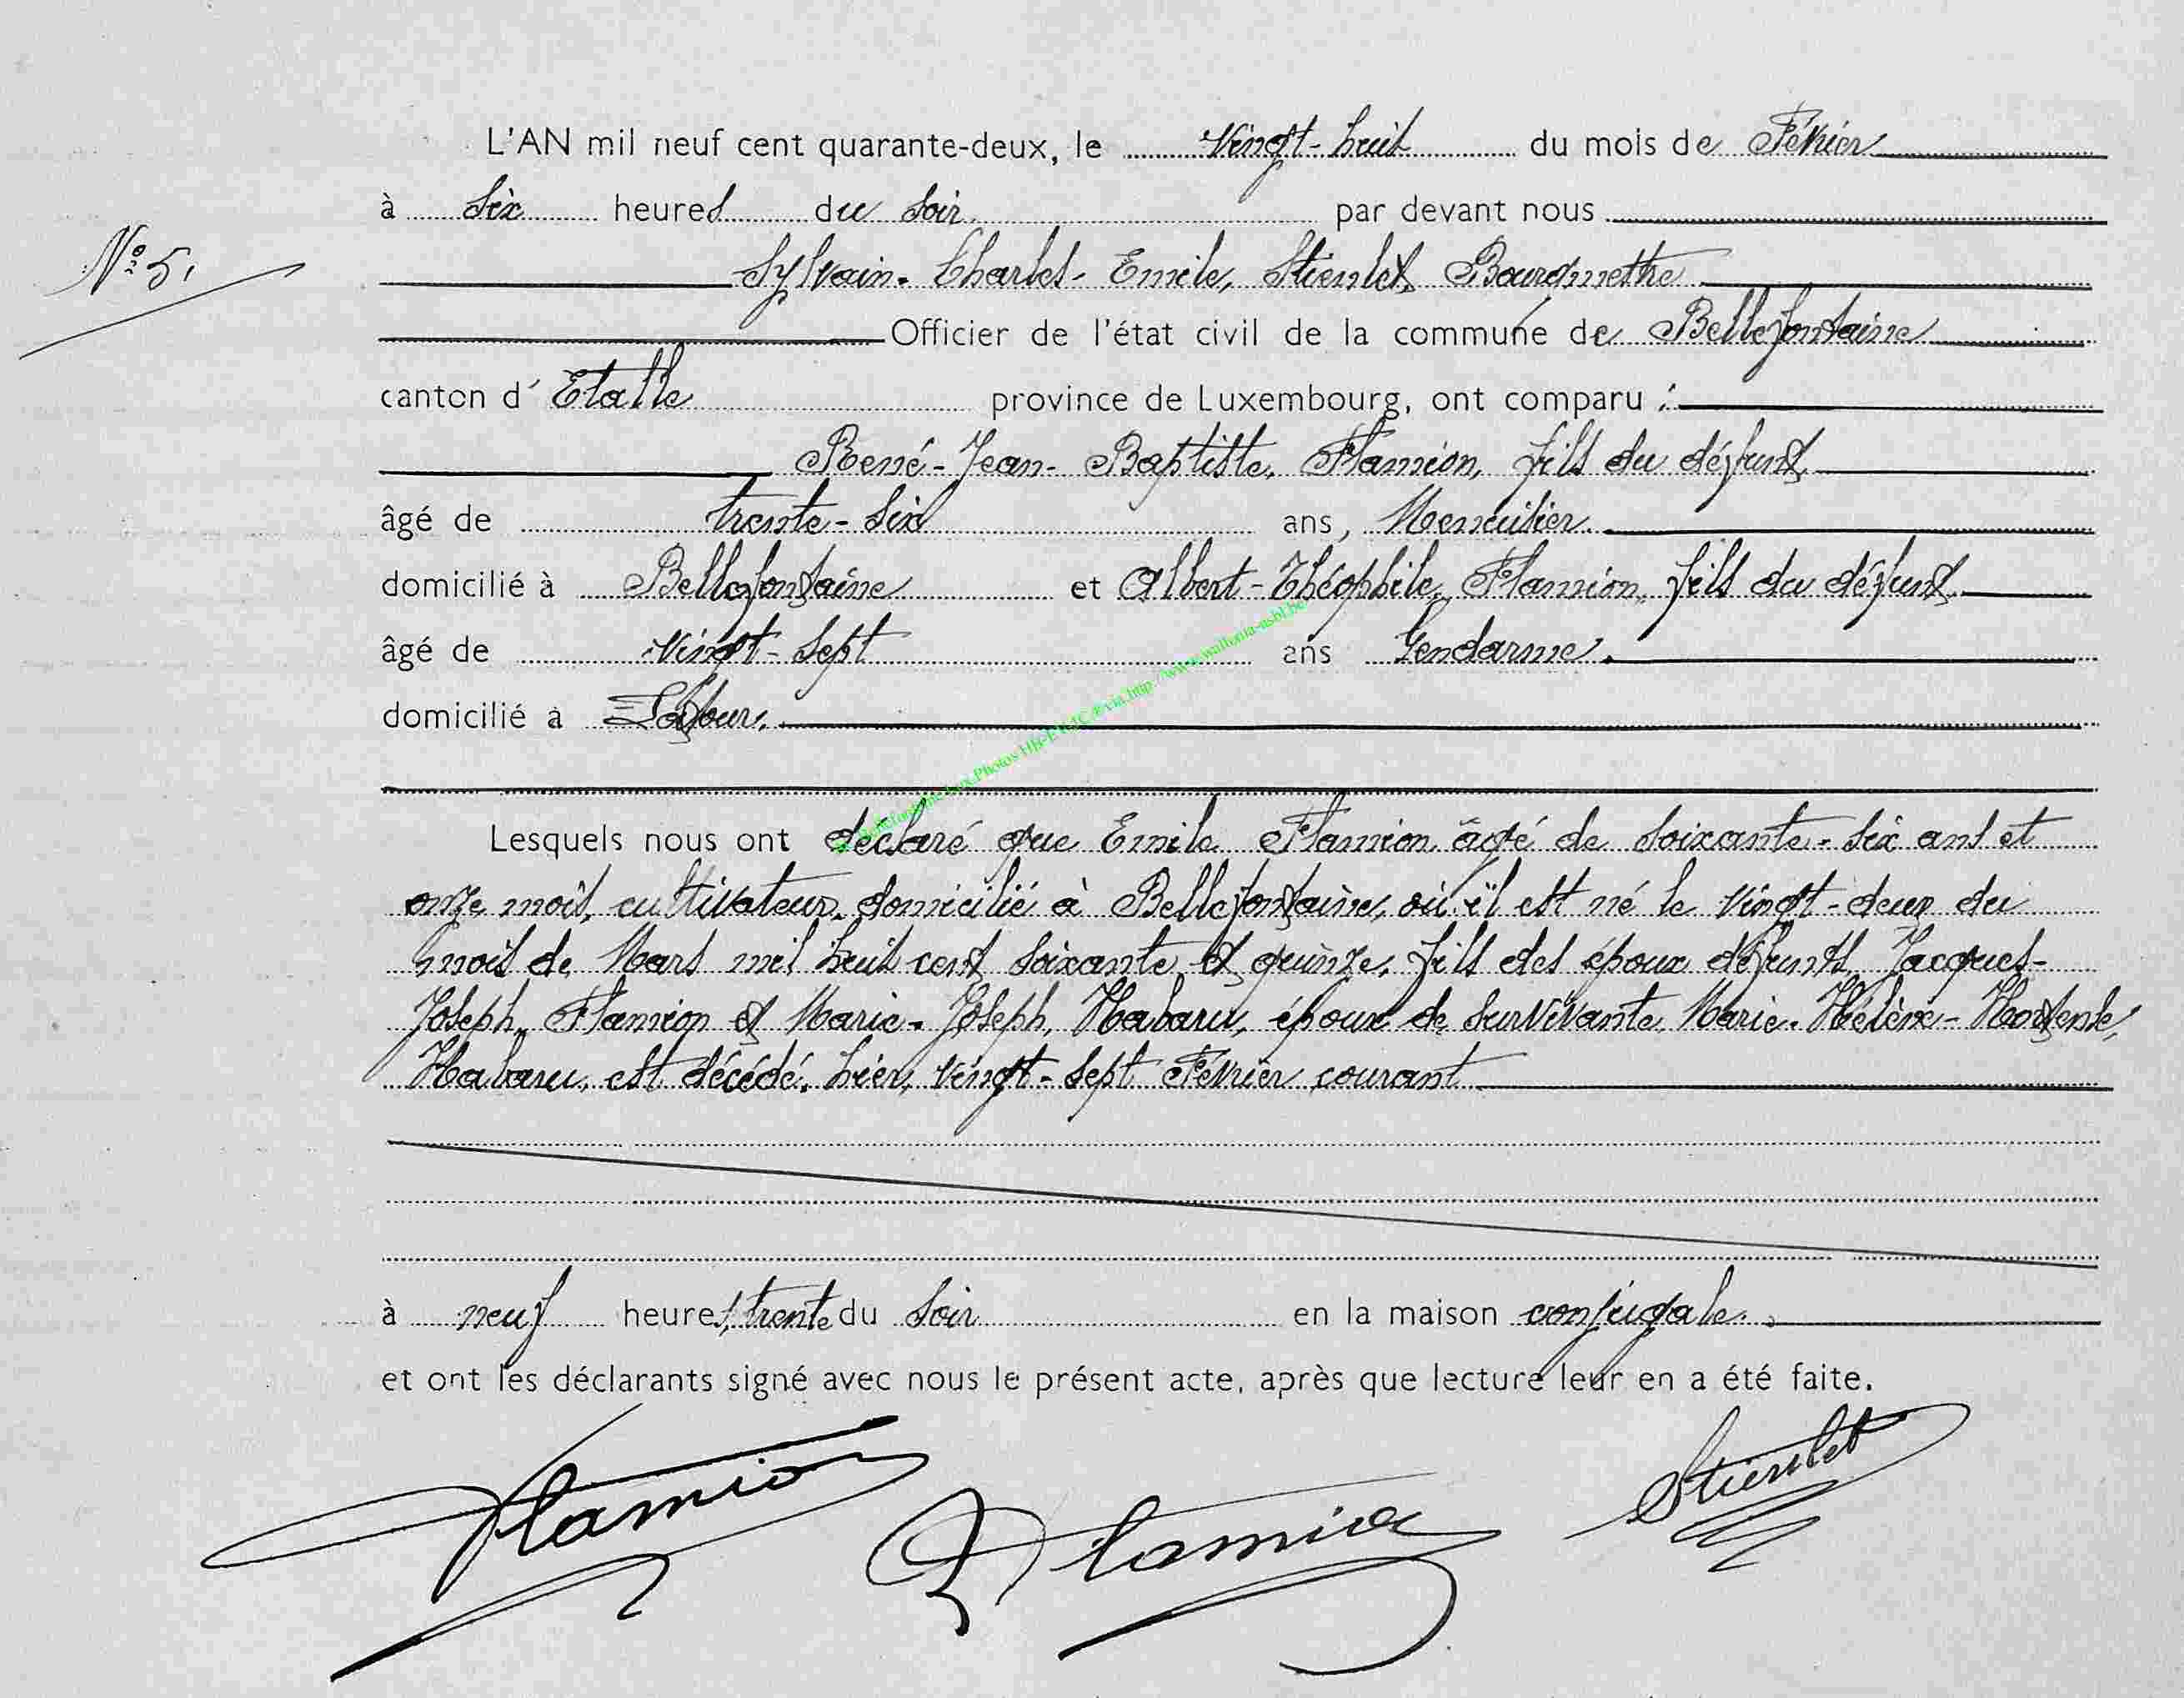 L'AN mil neuf cent quarante-deux, le vingt-huit du mois de Février
à six heures du soir par devant nous
N° 5.
Sylvain-Charles-Emile, Stienlet, Bourgmestre
Officier de l'état civil de la commune de Bellefontaine
canton d'Etalle province de Luxembourg, ont comparu :
René-Jean-Baptiste, Flamion, fils du défunt
âgé de trente-six ans, Menuisier.
domicilié à Bellefontaine et Albert-Théophile, Flamion, fils du défunt
âgé de vingt-sept ans Gendarme.
domicilié à
Lesquels nous ont déclaré que Emile Flamion âgé de soixante-six ans et
onze mois, cultivateur, domicilié à Bellefontaine, où il est né le vingt-deux du
mois de Mars mil huit cent soixante et quinze, fils des époux défunts Jacques-
Joseph, Flamion et Marie-Joseph, Habaru, époux de survivante Marie-Hélène-Hortense,
Habaru, est décédé, hier, vingt-sept Février courant
à neuf heures, trente du soir en la maison conjugale.
et ont les déclarants signé avec nous le présent acte, après que lecture leur en a été faite.
Flamion Flamion Stienlet